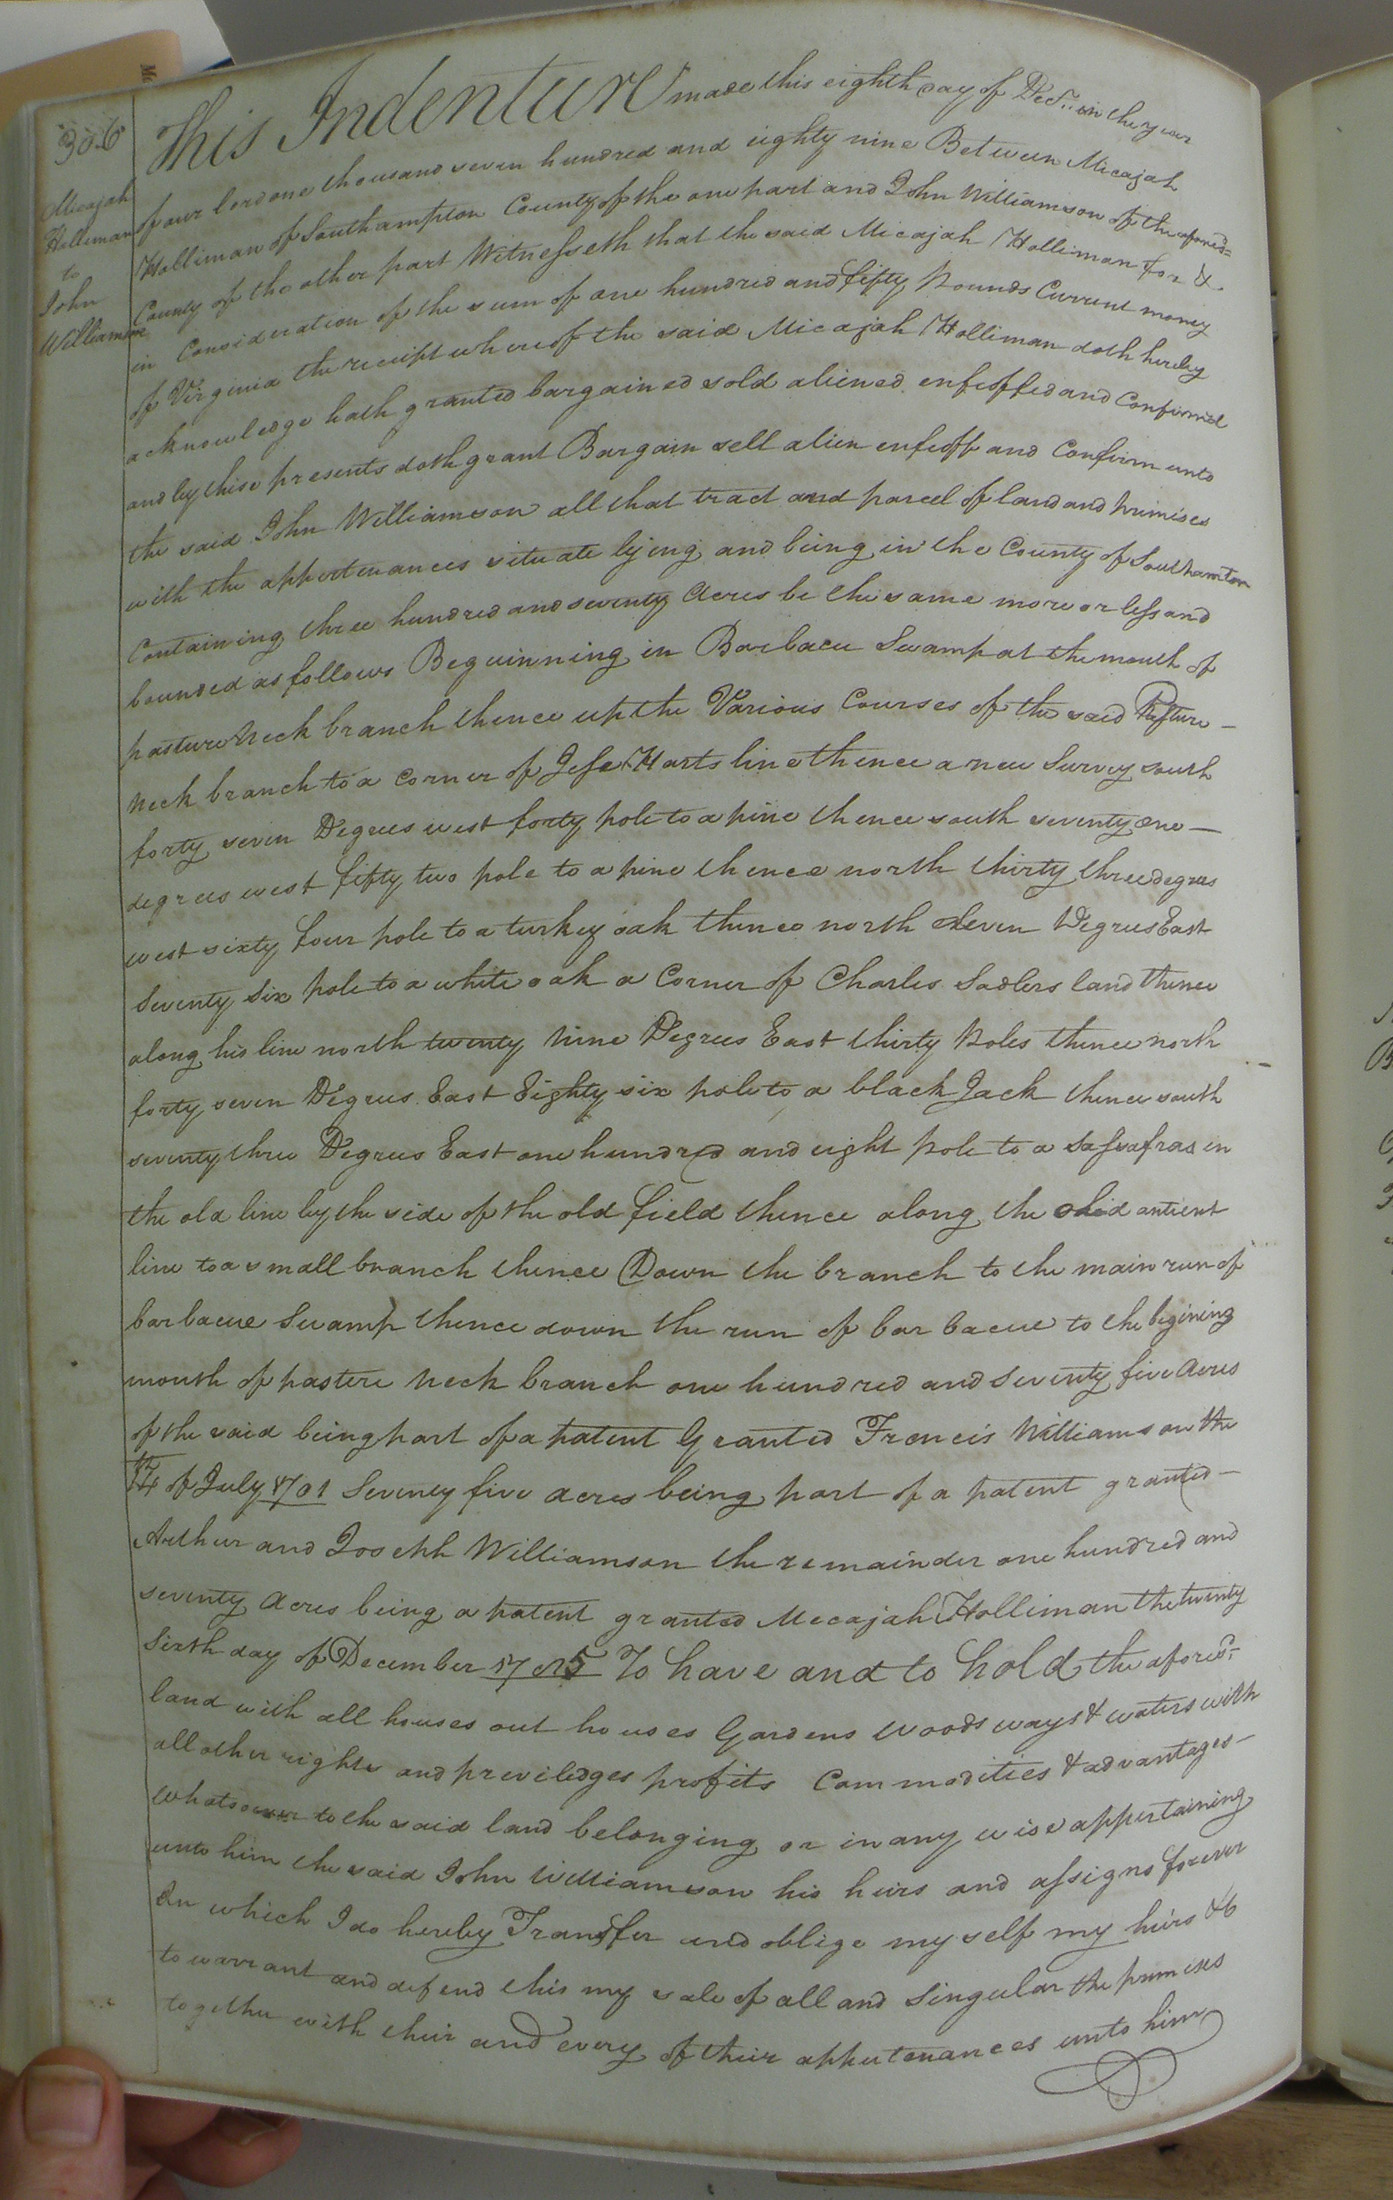 306
Micajah
Holliman
to
John
Williamson
This Indenture made this eighth day of Decr. in the year
of our lord one thousand seven hundred and eighty nine Between Micajah
Holliman of Southampton County of the one part and John Williamson of the aforesd=
County of the other part Witnesseth that the said Micajah Holliman for &
in Consideration of the sum of one hundred and fifty Pounds Current money
of Virginia the receipt whereof the said Micajah Holliman doth hereby
acknowledge hath granted bargained sold aliened enfeoffed and Confirmed
and by these presents doth grant Bargain sell alien enfeoff and Confirm unto
the said John Williamson all that tract and parcel of land and primises
with the appertenances situate lying and being in the County of Southamton
Containing three hundred and seventy Acres be the same more or less and
bounded as follows Beguinning in Barbacue Swamp at the mouth of
pasture Neck branch thence up the Various Courses of the said Pasture—
Neck branch to a corner of Jesse Harts line thence a new Survey south
forty seven Degrees west forty pole to a pine thence south seventy one—
degrees west fifty two pole to a pine thence north thirty three degrees
west sixty four pole to a turkey oak thence north eleven Degrees East
Seventy Six pole to a white oak a Corner of Charles Sadlers land thence
along his line north twenty Nine Degrees East thirty Poles thence north
forty seven Degrees East Eighty six pole to a black Jack thence south
seventy three Degrees East one hundred and eight pole to a Sassafras in
the old line by the side of the old field thence along the antient
line to a small branch thence Down the branch to the main run of
barbacue Swamp thence down the run of barbacue to the begining
mouth of pasture Neck branch one hundred and Seventy five Acres
of the said being part of a patent Granted Francis Williamson the
of July 1701 Seventy five acres being part of a patent granted—
Arthur and Joseph Williamson the remainder one hundred and
seventy Acres being a patent granted Mecajah Holliman the twenty
Sixth day of December To have and to hold the aforesd=
land with all houses out houses Gardens Woods ways & waters with
all other rights and previledges profits Commodities & advantages—
whatsoever to the said land belonging or in any wise appertaining
unto him the said John Williamson his heirs and assigns forever
In which I do hereby Transfer and oblige myself my heirs &c
to warrant and defend this my sale of all and Singular the primises
together with their and every of their appertenances unto him